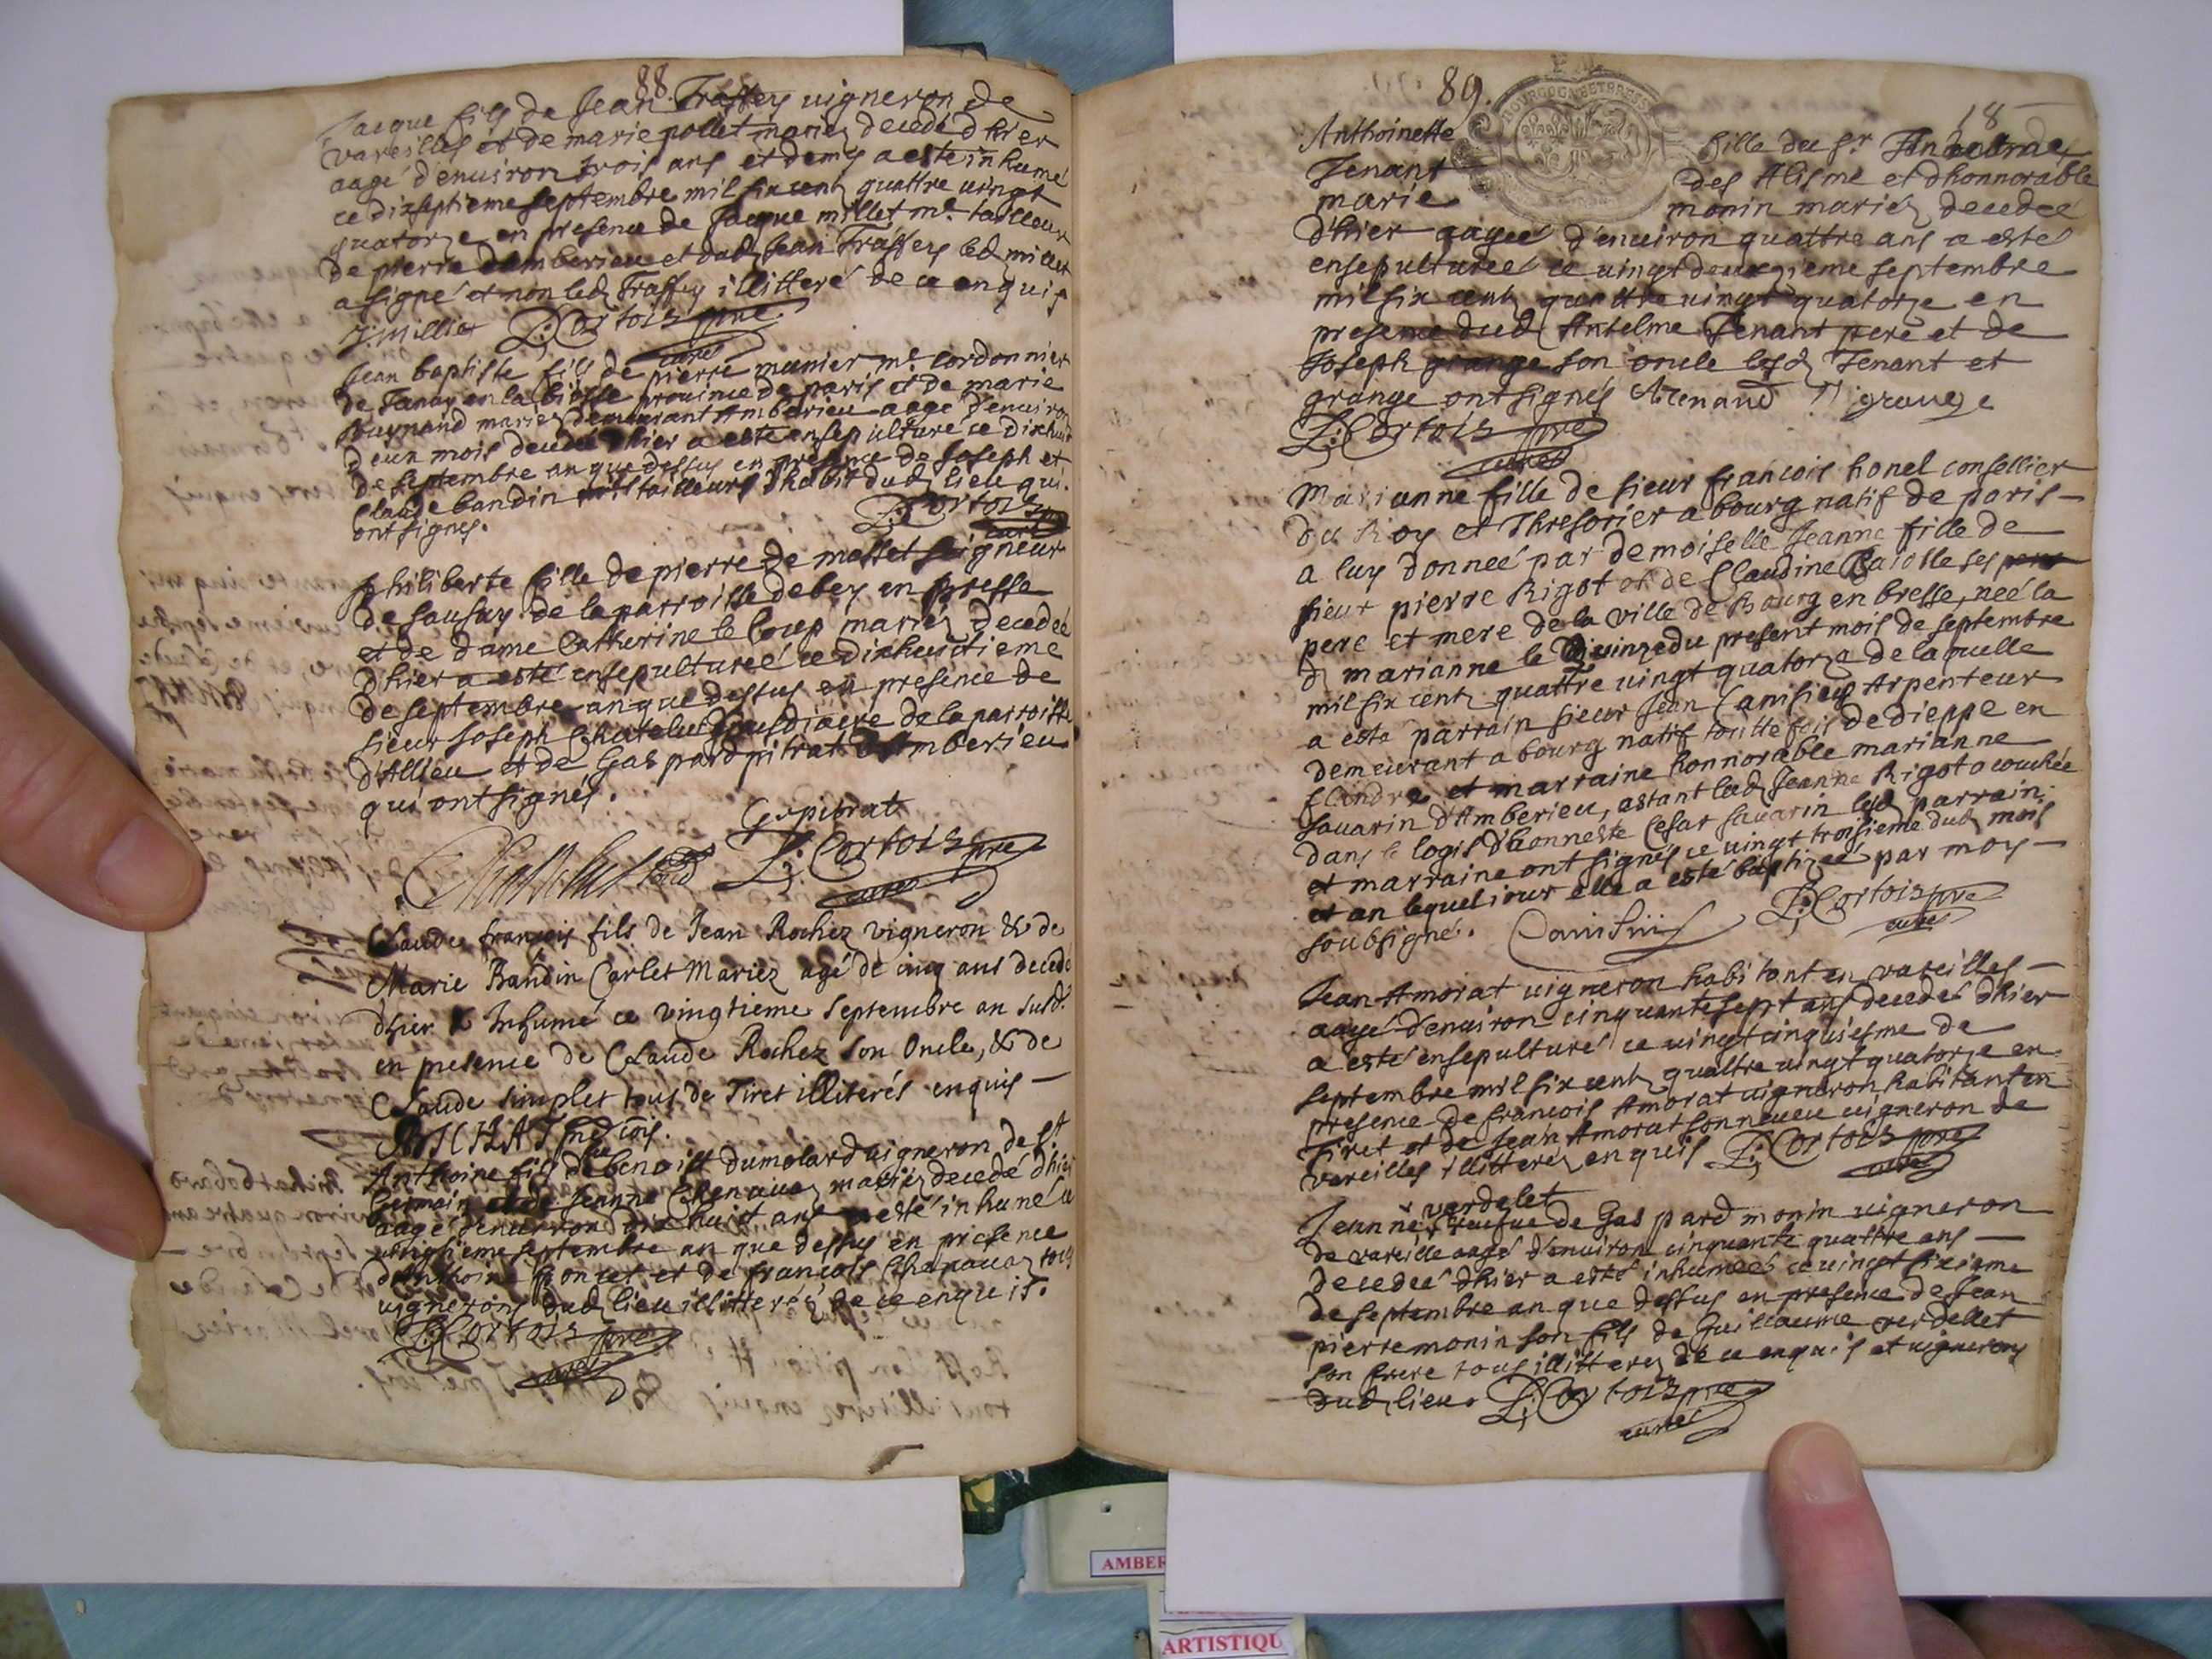 88.
Jacque fils de Jean Traffey vigneron de
vareilles et de marie pollet mariez decedé dhier
aagé d'environ trois ans et demy a esté inhumé
ce dixseptieme septembre mil six centz quattre vingt
quatorze en presence de Jacque millet me. tailleur
de pierre d'amberieu et dudz Jean Traffey ledz millet
a signé et non ledz Traffey illitteré de ce enquis
J. millier L: Cortois pbre
curé
Jean baptiste fils de pierre munier me. cordonnier
de en la province de paris et de marie
mariez demeurant Amberieu aagé d'environ
deux mois decedé dhier a esté ensepulturé ce dixhuit
de septembre an que dessus en presence de Joseph et
Claude bandin tailleurs d'habit dudz lieu qui
ont signes. L: Cortois pbre
curé
philiberte fille de pierre de mosset seigneur
de sousuy de la parroisse de bey en bresse
et de dame Catherine le Loup mariez decedeé
dhier a esté ensepultureé ce dixhuictieme
de septembre an que dessus en presence de
sieur Joseph Chatelut sousdiacre de la parroisse
d'Allieu et de Gaspard pitrat d'Amberieu
qui ont signés.
G. pitrat
L: Cortois pbre
curé
Claude françois fils de Jean Rochez vigneron & de
Marie Bandin Carlet Mariez agé de cinq ans decedé
dhier & Inhumé ce vingtieme Septembre an susd.
en presence de Claude Rochez son Oncle, & de
Claude simplet tous de Tiret illiterés enquis —
Anthoine fils de benoist dumolard vigneron de St
Germain et de Jeanne Chenavaz mariez decedé dhier
aagé d'environ dix huit ans a esté inhumé ce
vingtieme septembre an que dessus en presence
d'Anthoine poncet et de francois Chenavaz tous
vignerons dudz lieu illitterés de ce enquis.
L: Cortois pbre
curé
89.
18
BOURGOGNE ET BRESSE
Anthoinette fille du sr.
Tenant des Alisme et dhonnorable
marie monin mariez decedeé
d'hier aageé d'environ quattre ans a esté
ensepultureé ce vingt deuxzieme septembre
mil six centz quattre vingt quatorze en
presence dudz Anselme Tenant pere et de
Joseph grange son oncle lesdz Tenant et
grange ont signés A Tenand J grange
L: Cortois pbre
curé
Marianne fille de sieur francois honel consellier
du Roy et Thresorier a bourg natif de paris —
a luy donneé par demoiselle Jeanne fille de
sieur pierre Rigot et de Claudine ses
pere et mere de la ville de Bourg en bresse, neé la
dz marianne le Quinze du present mois de septembre
mil six centz quattre vingt quatorze de laquelle
a esté parrain sieur Jean Camisieu Arpenteur
demeurant a bourg natif touttefois de dieppe en
flandre et marraine honnorable marianne
savarin d'Amberieu, astant ladz Jeanne Rigot acouchée
dans le logis d'honneste Cesar savarin lesdz parrain
et marraine ont signés ce vingt troisieme dudz mois
et an lequel iour elle a esté baptizeé par moy —
soubsigné. L: Cortois pbre
curé
Jean Amorat vigneron habitant en vareilles —
aagé d'environ cinquantesept ans decedé dhier
a esté ensepulturé ce vingtcinquiesme de
septembre mil six centz quattre vingt quatorze en
presence de francois Amorat vigneron habitant en
Tiret et de Jean Amorat son neveu vigneron de
vareilles illitterez enquis L: Cortois pbre
curé
verdelet
Jeanne vefue de Gaspard monin vigneron
de vareille aagé d'environ cinquante quattre ans —
decedeé dhier a esté inhumeé ce vingt sixieme
de septembre an que dessus en presence de Jean
pierre monin son fils de Guillaume verdellet
son frere tous illitterez de ce enquis et vignerons
dudz lieu. L: Cortois pbre
curé
AMBER
ARTISTIQU